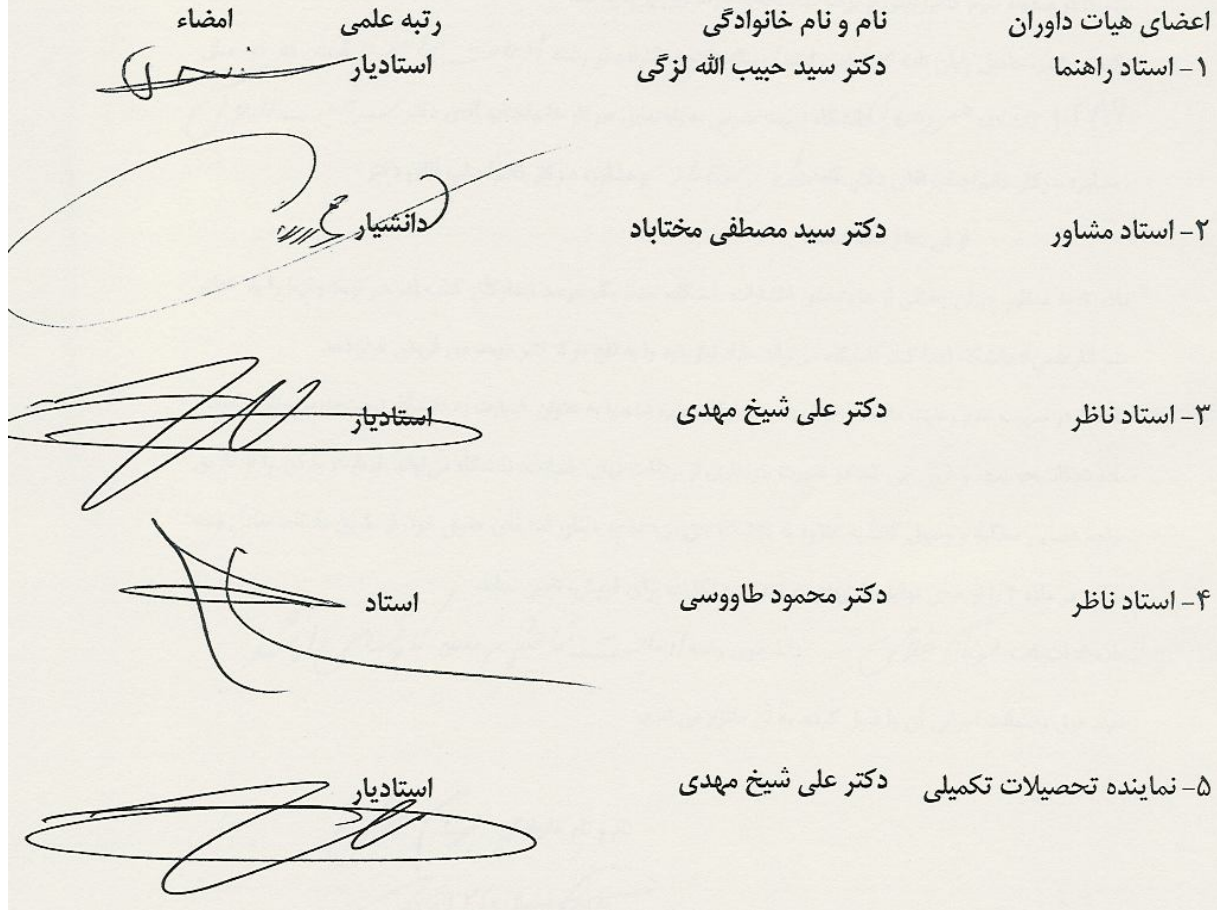 اعضای هیات داوران نام و نام خانوادگی رتبه علمی امضاء
۱- استاد راهنما دکتر سید حبیب الله لزگی استادیار
۲- استاد مشاور دکتر سید مصطفی مختاباد دانشیار
۳- استاد ناظر دکتر علی شیخ مهدی استادیار
۴- استاد ناظر دکتر محمود طاووسی استاد
۵- نماینده تحصیلات تکمیلی دکتر علی شیخ مهدی استادیار